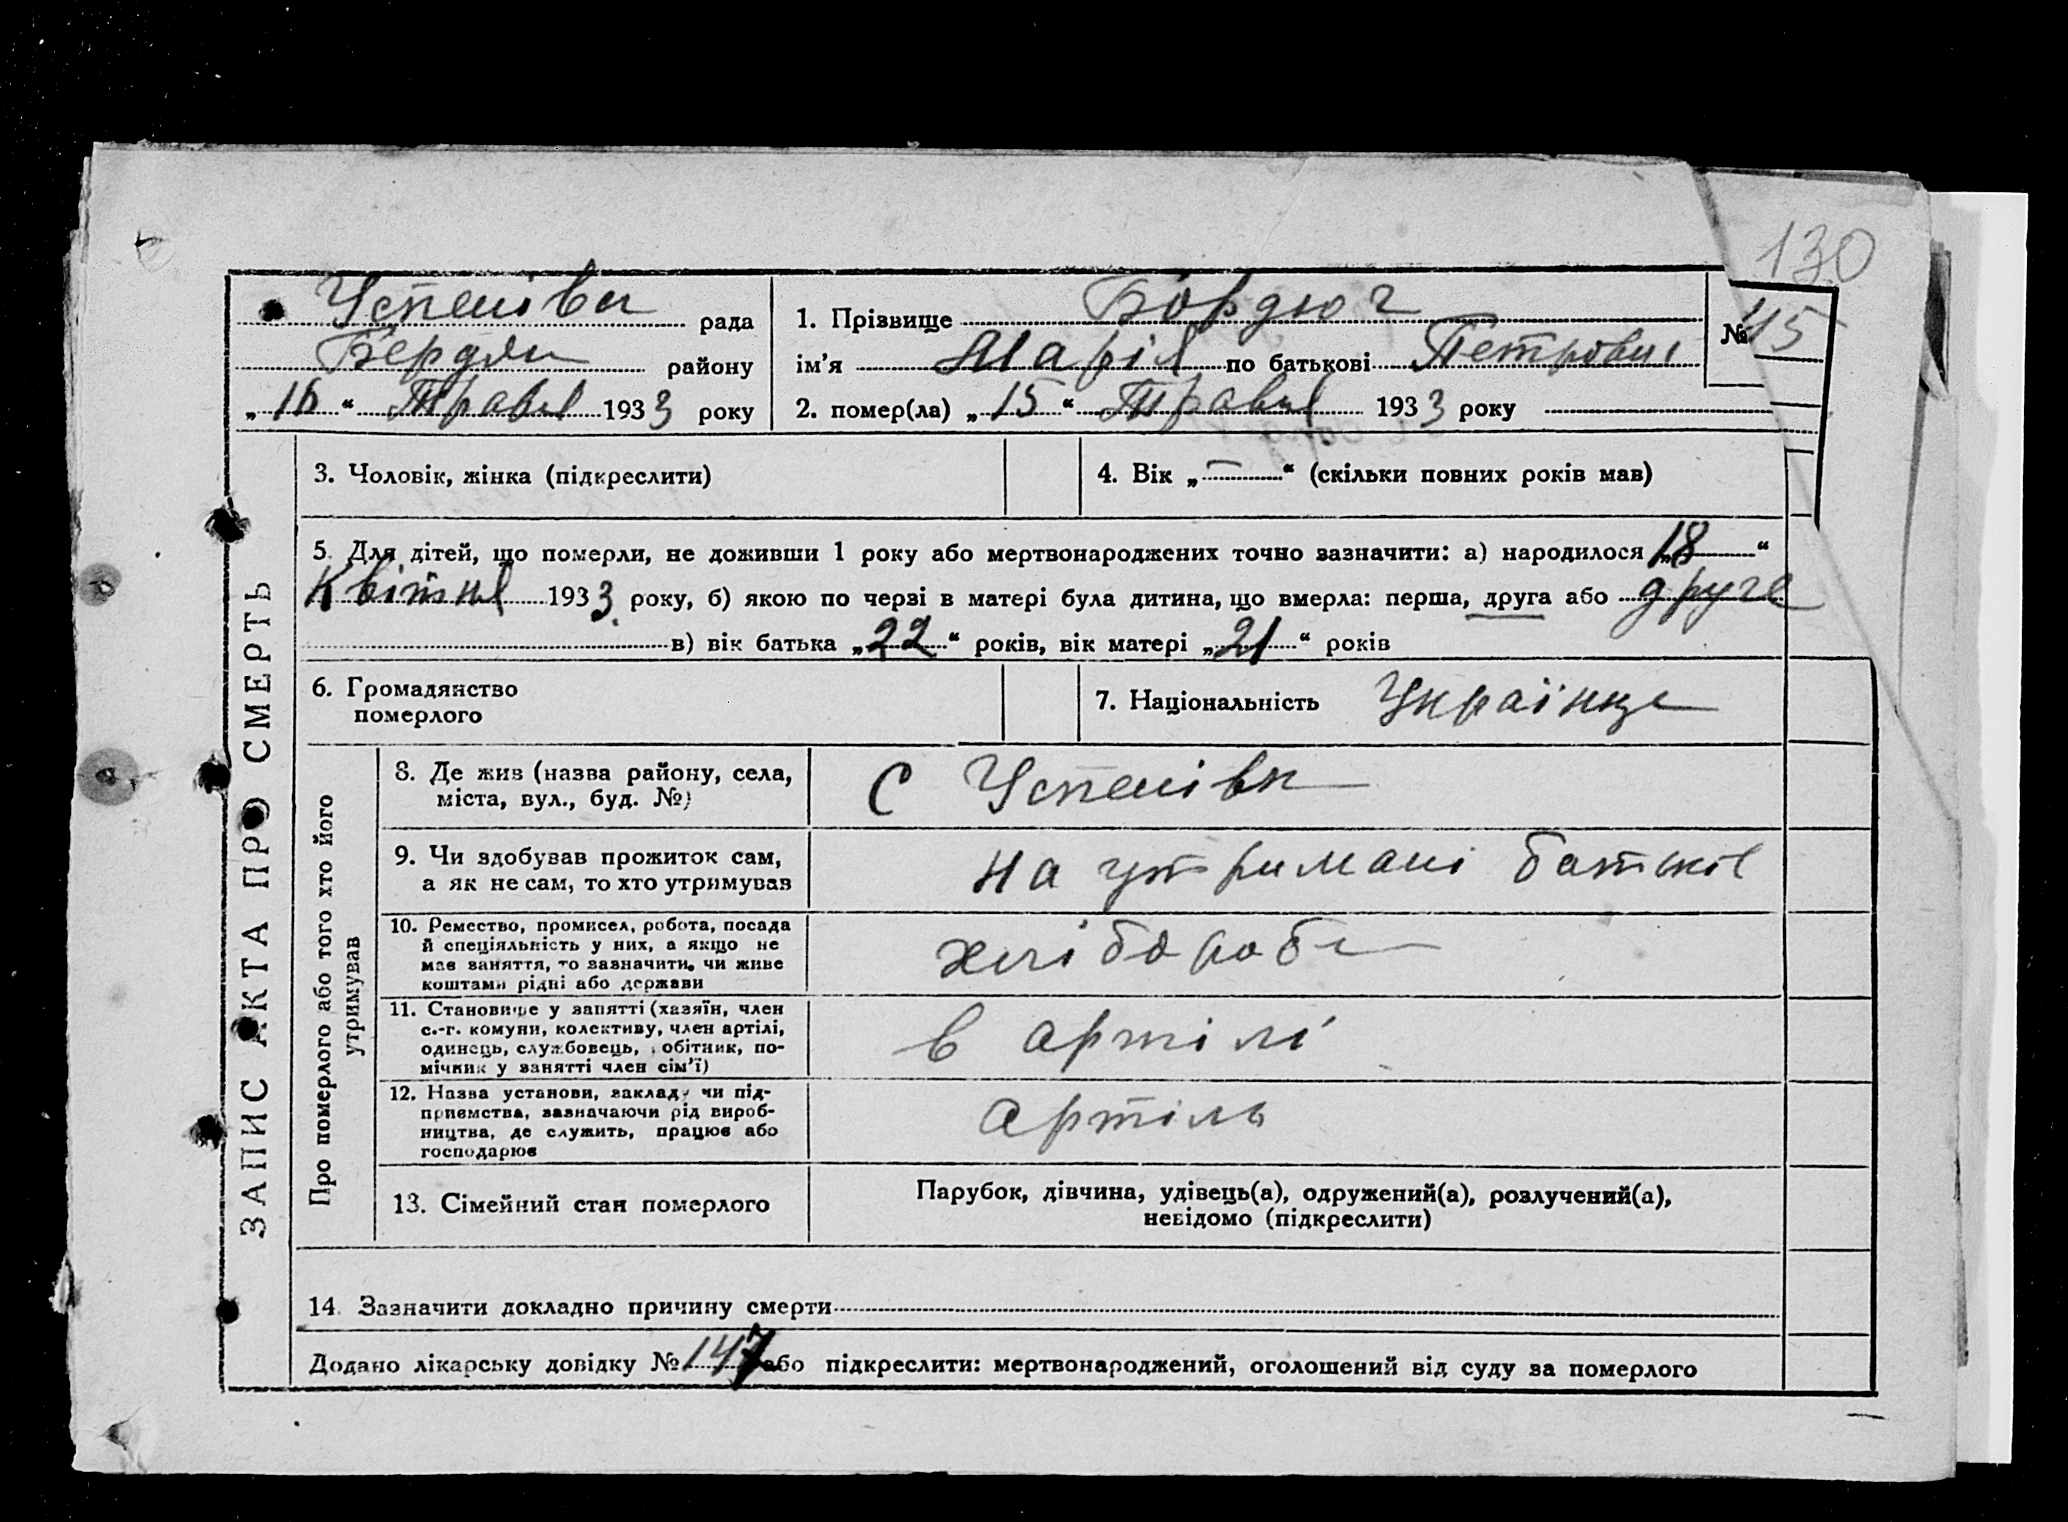 130
Успенівка рада
Бердян району
„16“ Травня 1933 року
1. Прізвище Бордюг
ім’я Марія по батькові Петровна
2. помер(ла) „15“ Травня 1933 року
№ 45
ЗАПИС АКТА ПРО СМЕРТЬ
3. Чоловік, жінка (підкреслити)
4. Вік „—“ (скільки повних років мав)
5. Для дітей, що померли, не доживши 1 року або мертвонароджених точно зазначити: а) народилося „18“
Квітня 1933 року, б) якою по черзі в матері була дитина, що вмерла: перша, друга або друге
в) вік батька „22“ років, вік матері „21“ років
6. Громадянство
померлого
7. Національність Українце
Про померлого або того хто його
утримував
8. Де жив (назва району, села,
міста, вул., буд. №)
с Успенівк
9. Чи здобував прожиток сам,
а як не сам, то хто утримував
на утримані батьків
10. Ремество, промисел, робота, посада
й спеціяльність у них, а якщо не
має заняття, то зазначити, чи живе
коштами рідні або держави
хлібороби
11. Становище у занятті (хазяїн, член
с.-г. комуни, колективу, член артілі,
одинець, службовець, робітник, по-
мічник у занятті член сім’ї)
в артілі
12. Назва установи, закладу чи під-
приємства, зазначаючи рід вироб-
ництва, де служить, працює або
господарює
артіль
13. Сімейний стан померлого
Парубок, дівчина, удівець(а), одружений(а), розлучений(а),
невідомо (підкреслити)
14. Зазначити докладно причину смерти
Додано лікарську довідку № 147 або підкреслити: мертвонароджений, оголошений від суду за померлого